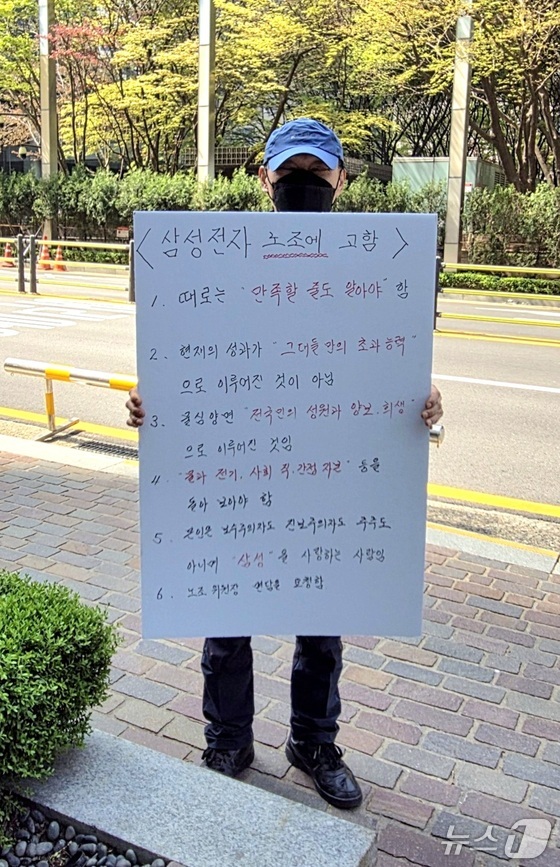 <삼성전자 노조에 고함>
1. 때로는 "만족할 줄도 알아야" 함
2. 현재의 성과가 "그대들만의 초과능력"
으로 이루어진 것이 아님
3. 물심양면 "전국민의 성원과 양보. 희생"
으로 이루어진 것임
4. 전기, 사회 직.간접 자본" 등을
돌아 보아야 함
5. 본인은 보수주의자도 진보주의자도 주주도
아니며 "삼성"을 사랑하는 사람임
6. 노조위원장 면담을 요청함
뉴스1